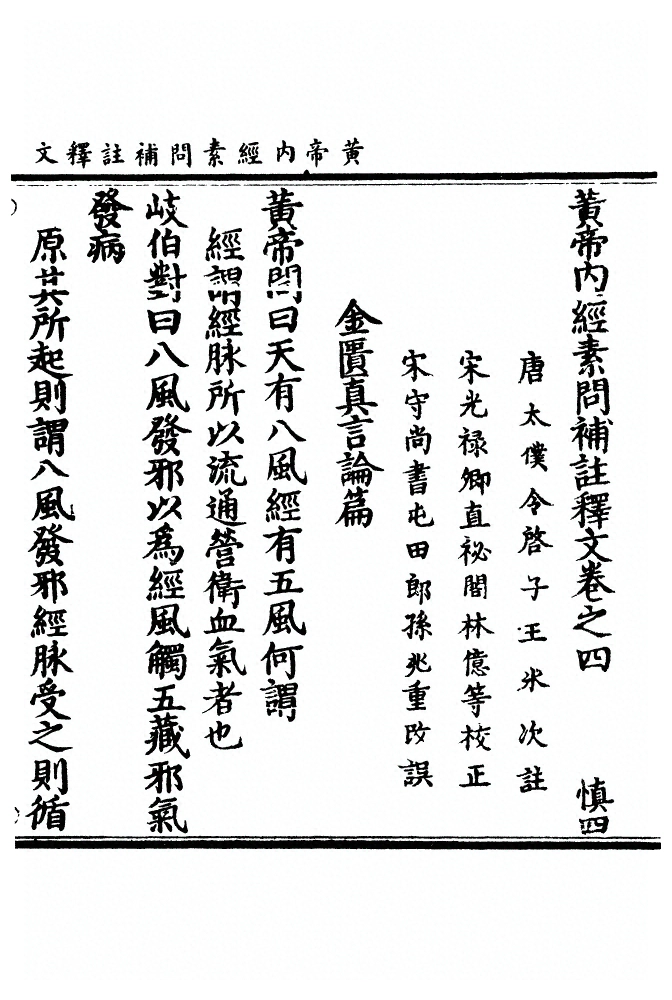 黃帝内經素問補註釋文
黃帝内經素問補註釋文卷之四 慎四
唐太僕令啓子王氷次註
宋光禄卿直祕閣林億等校正
宋守尚書屯田郎孫兆重改誤
金匱真言論篇
黃帝問曰天有八風經有五風何謂
經謂經脉所以流通營衛血氣者也
岐伯對曰八風發邪以爲經風觸五藏邪氣
發病
原其所起則謂八風發邪經脉受之則循